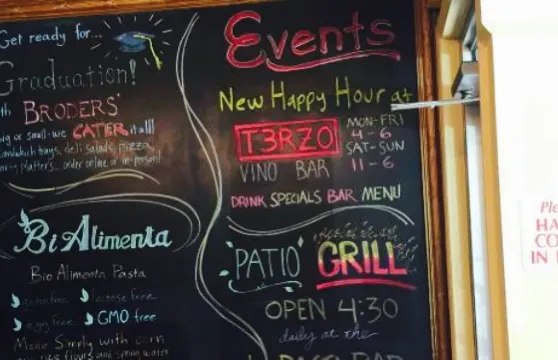 Get ready for...
Graduation!
BRODERS'
big or small-we CATER it all!
sandwich trays, deli salads, pizza,
platters... order online or in-person!
Bi Alimenta
Bio Alimenta Pasta
gluten free lactose free
egg free GMO free
Made Simply with corn
Events
New Happy Hour at
T3RZO
VINO BAR
MON-FRI
4-6
SAT-SUN
11-6
DRINK SPECIALS BAR MENU
PATIO GRILL
OPEN 4:30
daily at the
BAR
HA
CO
IN